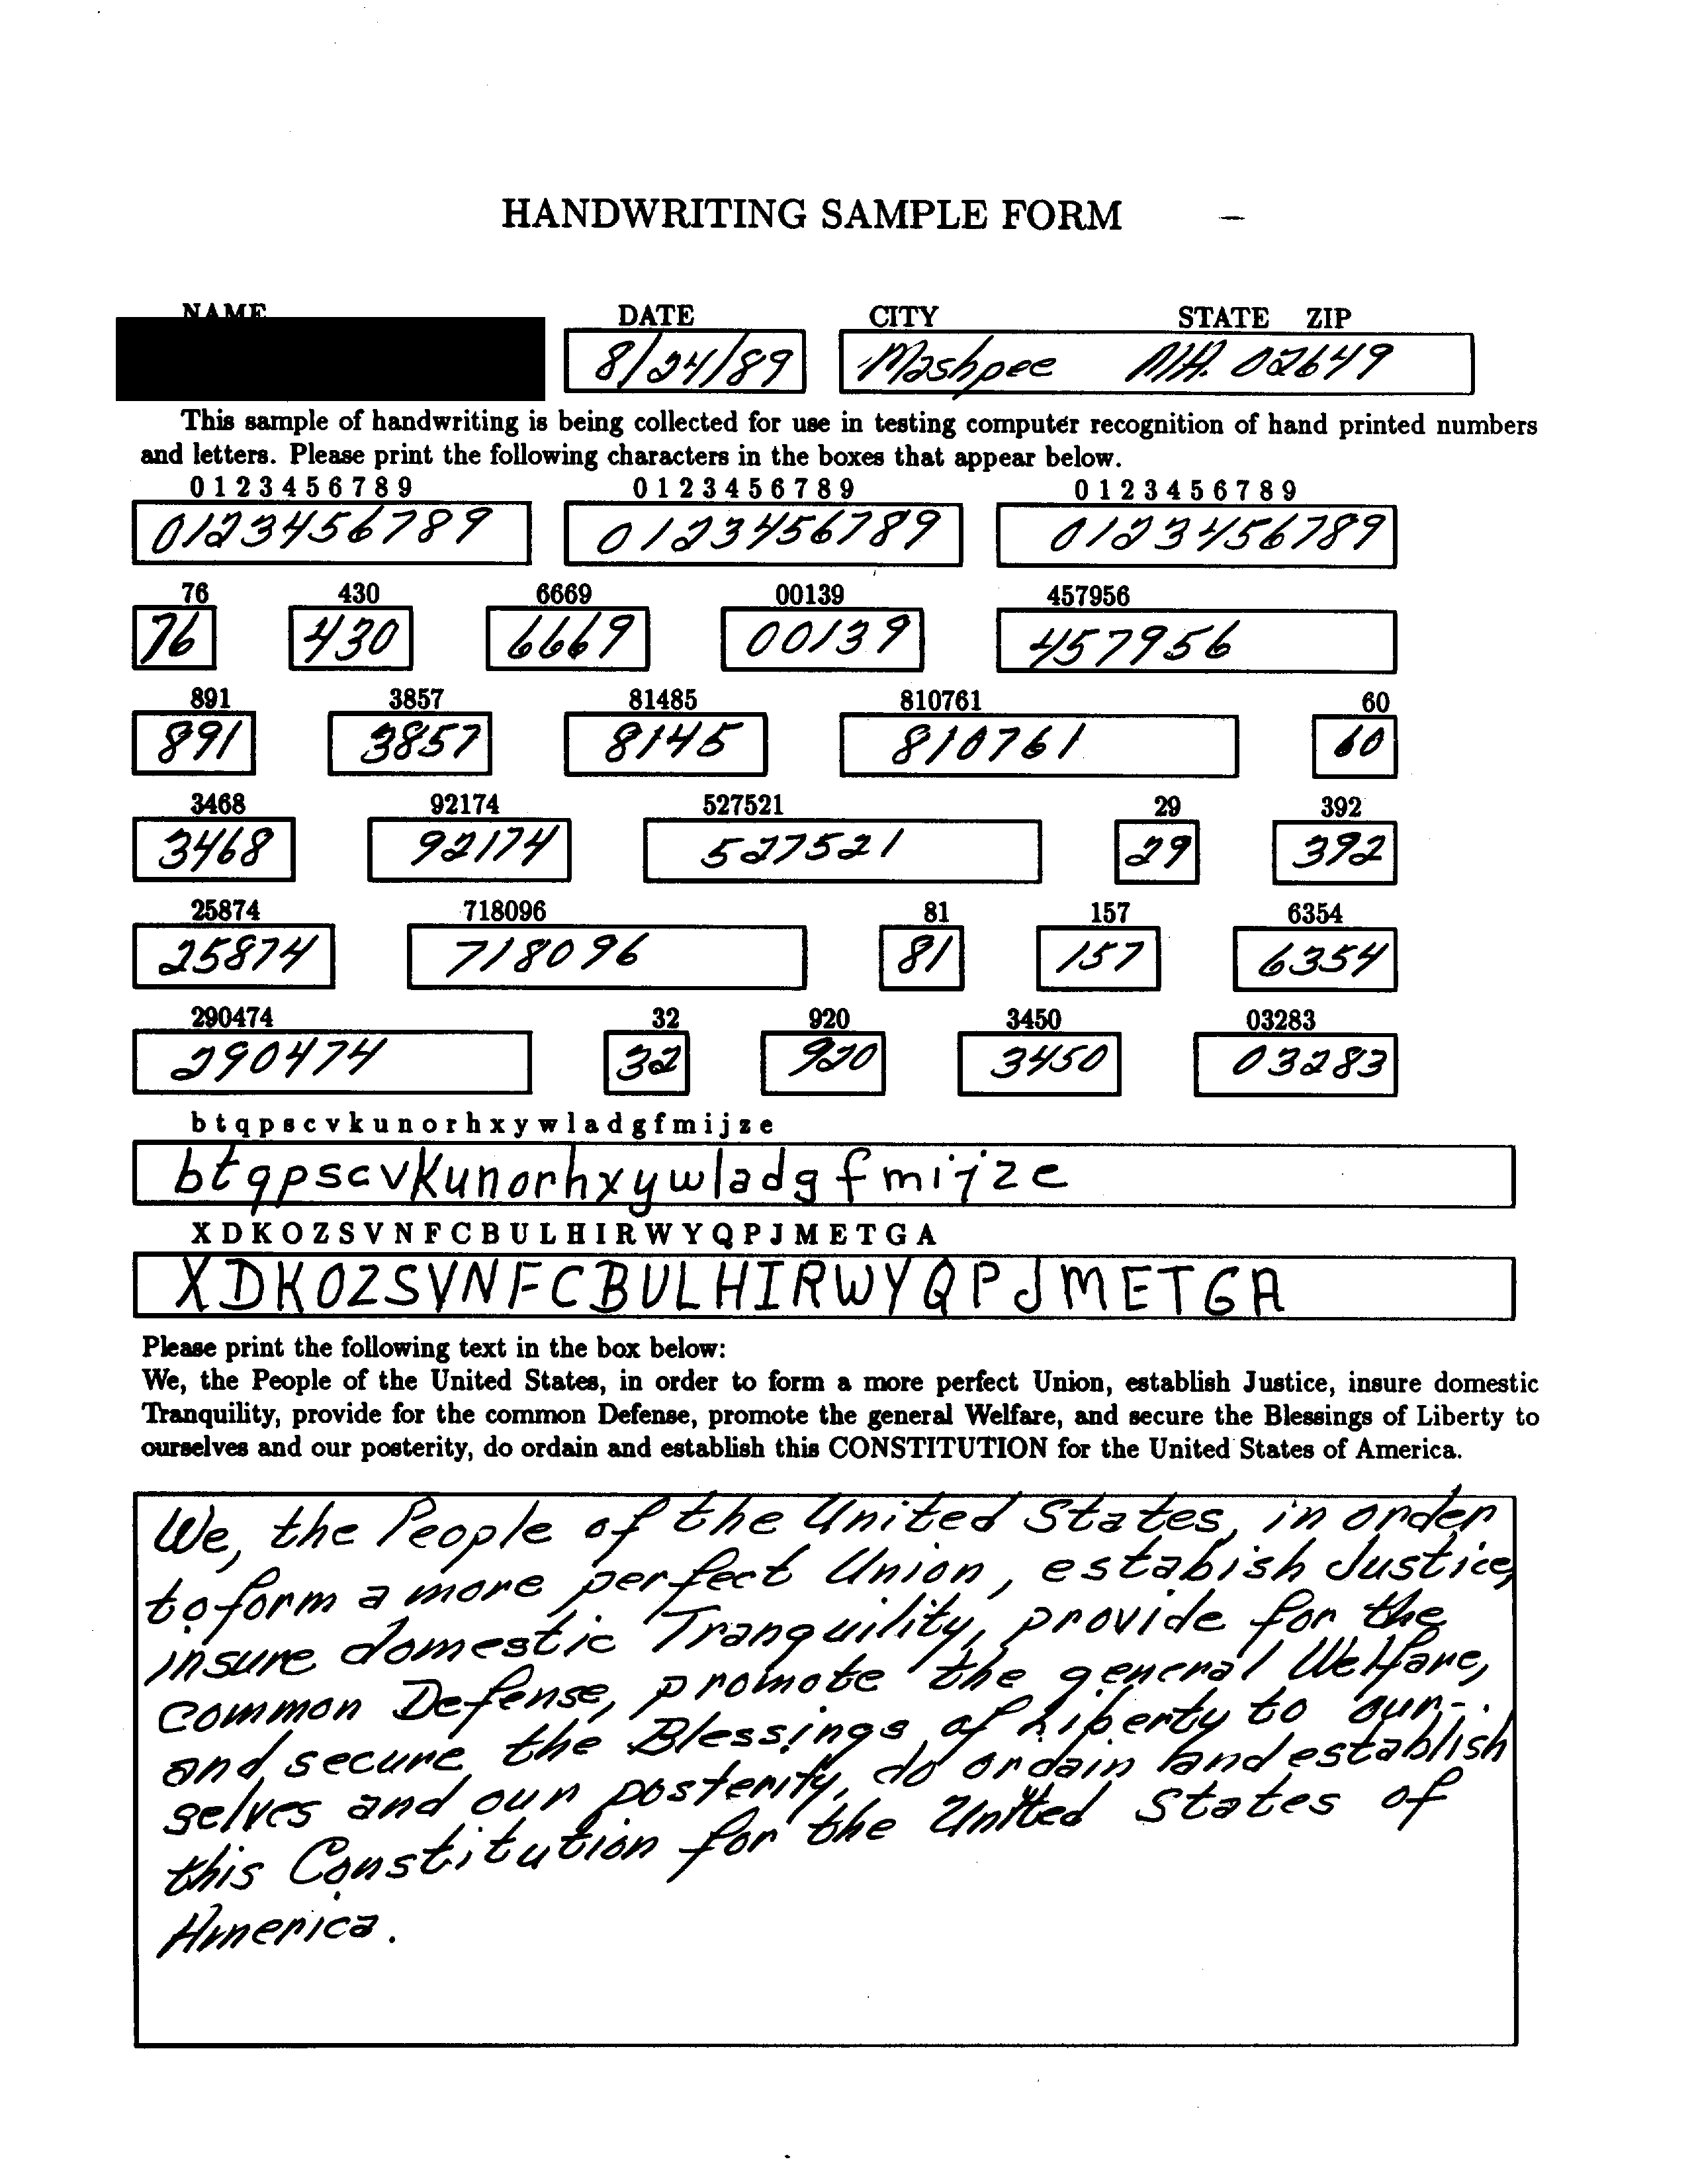 HANDWRITING SAMPLE FORM –
NAME DATE CITY STATE ZIP
8/24/89 Mashpee MA. 02649
This sample of handwriting is being collected for use in testing computer recognition of hand printed numbers
and letters. Please print the following characters in the boxes that appear below.
0 1 2 3 4 5 6 7 8 9 0 1 2 3 4 5 6 7 8 9 0 1 2 3 4 5 6 7 8 9
0123456789 0123456789 0123456789
76 430 6669 00139 457956
76 430 6669 00139 457956
891 3857 81485 810761 60
891 3857 8145 810761 60
3468 92174 527521 29 392
3468 92174 527521 29 392
25874 718096 81 157 6354
25874 718096 81 157 6354
290474 32 920 3450 03283
290474 32 920 3450 03283
b t q p s c v k u n o r h x y w l a d g f m i j z e
btqpscvkunorhxywladgfmijze
X D K O Z S V N F C B U L H I R W Y Q P J M E T G A
XDKOZSVNFCBULHIRWYQPJMETGA
Please print the following text in the box below:
We, the People of the United States, in order to form a more perfect Union, establish Justice, insure domestic
Tranquility, provide for the common Defense, promote the general Welfare, and secure the Blessings of Liberty to
ourselves and our posterity, do ordain and establish this CONSTITUTION for the United States of America.
We, the People of the United States, in order
to form a more perfect Union, estabish Justice,
insure domestic Tranquility, provide for the
common Defense, promote the general Welfare,
and secure the Blessings of Liberty to our-
selves and our posterity, do ordain and establish
this Constitution for the United States of
America.